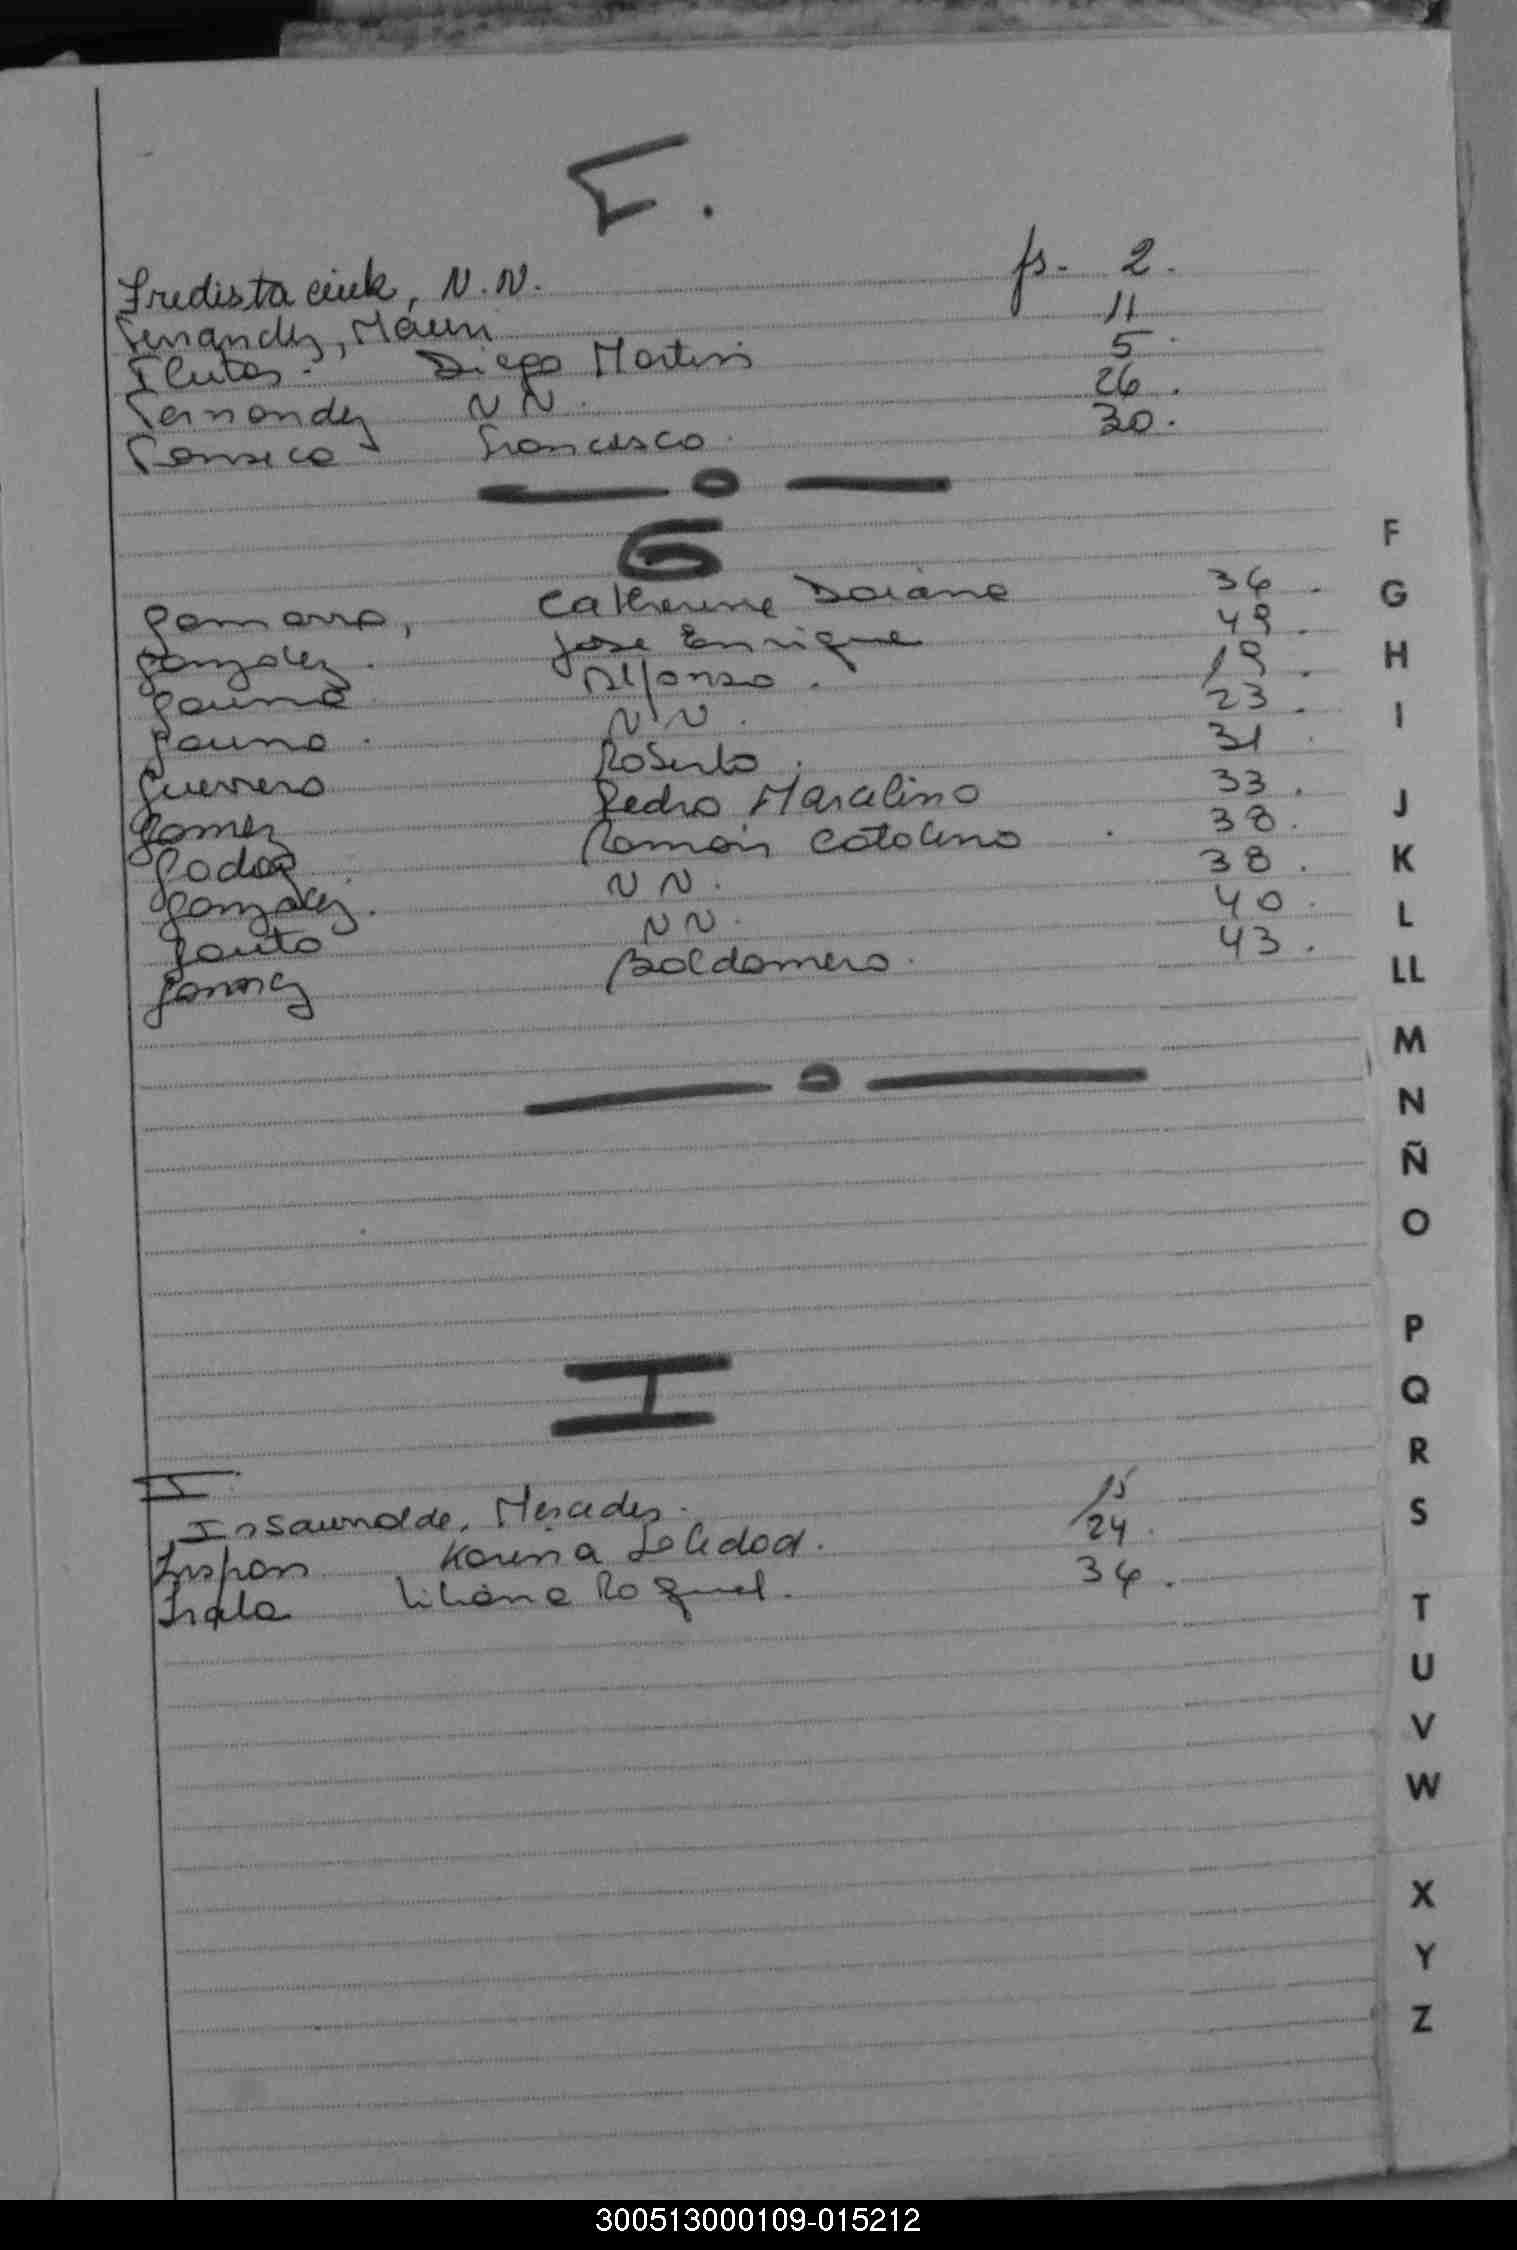 F.
Fredistaciuk, N.N. fs. 2.
Fernandez, Máuri 11
Fleitas. Diego Martin 5.
Fernandez N N. 26.
Fonseca Francesco. 30.
— o —
G
Gamarra, Catherine Daiana 36.
Gonzalez. Jose Enrique 49.
Gauna Alfonso. 19.
Gauna. N N. 23.
Guerrero Roberto. 31.
Gomez Pedro Marcelino 33.
Godoy Ramón Catalino 38.
Gonzalez. N N. 38.
Gauto N N. 40.
Gomez Baldomero. 43.
— o —
I
I
Insaurralde, Mercedes. 15
Karina Soledad. 24.
Irala Liliana Raquel. 34.
F
G
H
I
J
K
L
LL
M
N
Ñ
O
P
Q
R
S
T
U
V
W
X
Y
Z
300513000109-015212